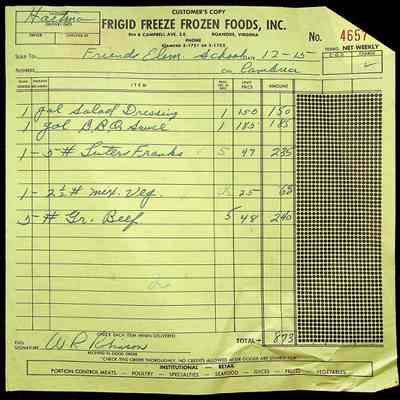 CUSTOMER'S COPY
Hartman
FRIGID FREEZE FROZEN FOODS, INC.
9TH & CAMPBELL AVE. S.E. ROANOKE, VIRGINIA
PHONE
DIAMOND 5-1751 OR 5-1752
No. 4657
DRIVER CHECKED BY
TERMS: NET WEEKLY
SOLD TO Friends Elem. School 12-15
C.O.D. CHARGE
ADDRESS Cambria ✓
ITEM UNIT PRICE AMOUNT
1 gal Salad Dressing 1 150 150
1 gal B.B.Q. Sauce 1 185 185
1 - 5 # Franks 5 47 235
1 - 2½ # mix. Veg. 25 63
5 # Gr. Beef 5 48 240
CHECK EACH ITEM WHEN DELIVERED
TOTAL→ 873
SIGNATURE
RECEIVED IN GOOD ORDER
"CHECK THIS ORDER THOROUGHLY. NO CREDITS ALLOWED AFTER GOODS ARE SIGNED FOR."
INSTITUTIONAL — RETAIL
PORTION CONTROL MEATS — POULTRY — SPECIALTIES — SEAFOOD — JUICES — FRUITS — VEGETABLES